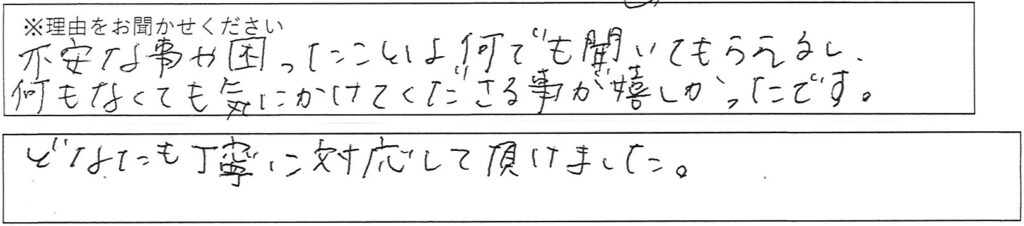 ※理由をお聞かせください
不安な事や困ったことは何でも聞いてもらえるし、
何もなくても気にかけてくださる事が嬉しかったです。
どなたも丁寧に対応して頂けました。